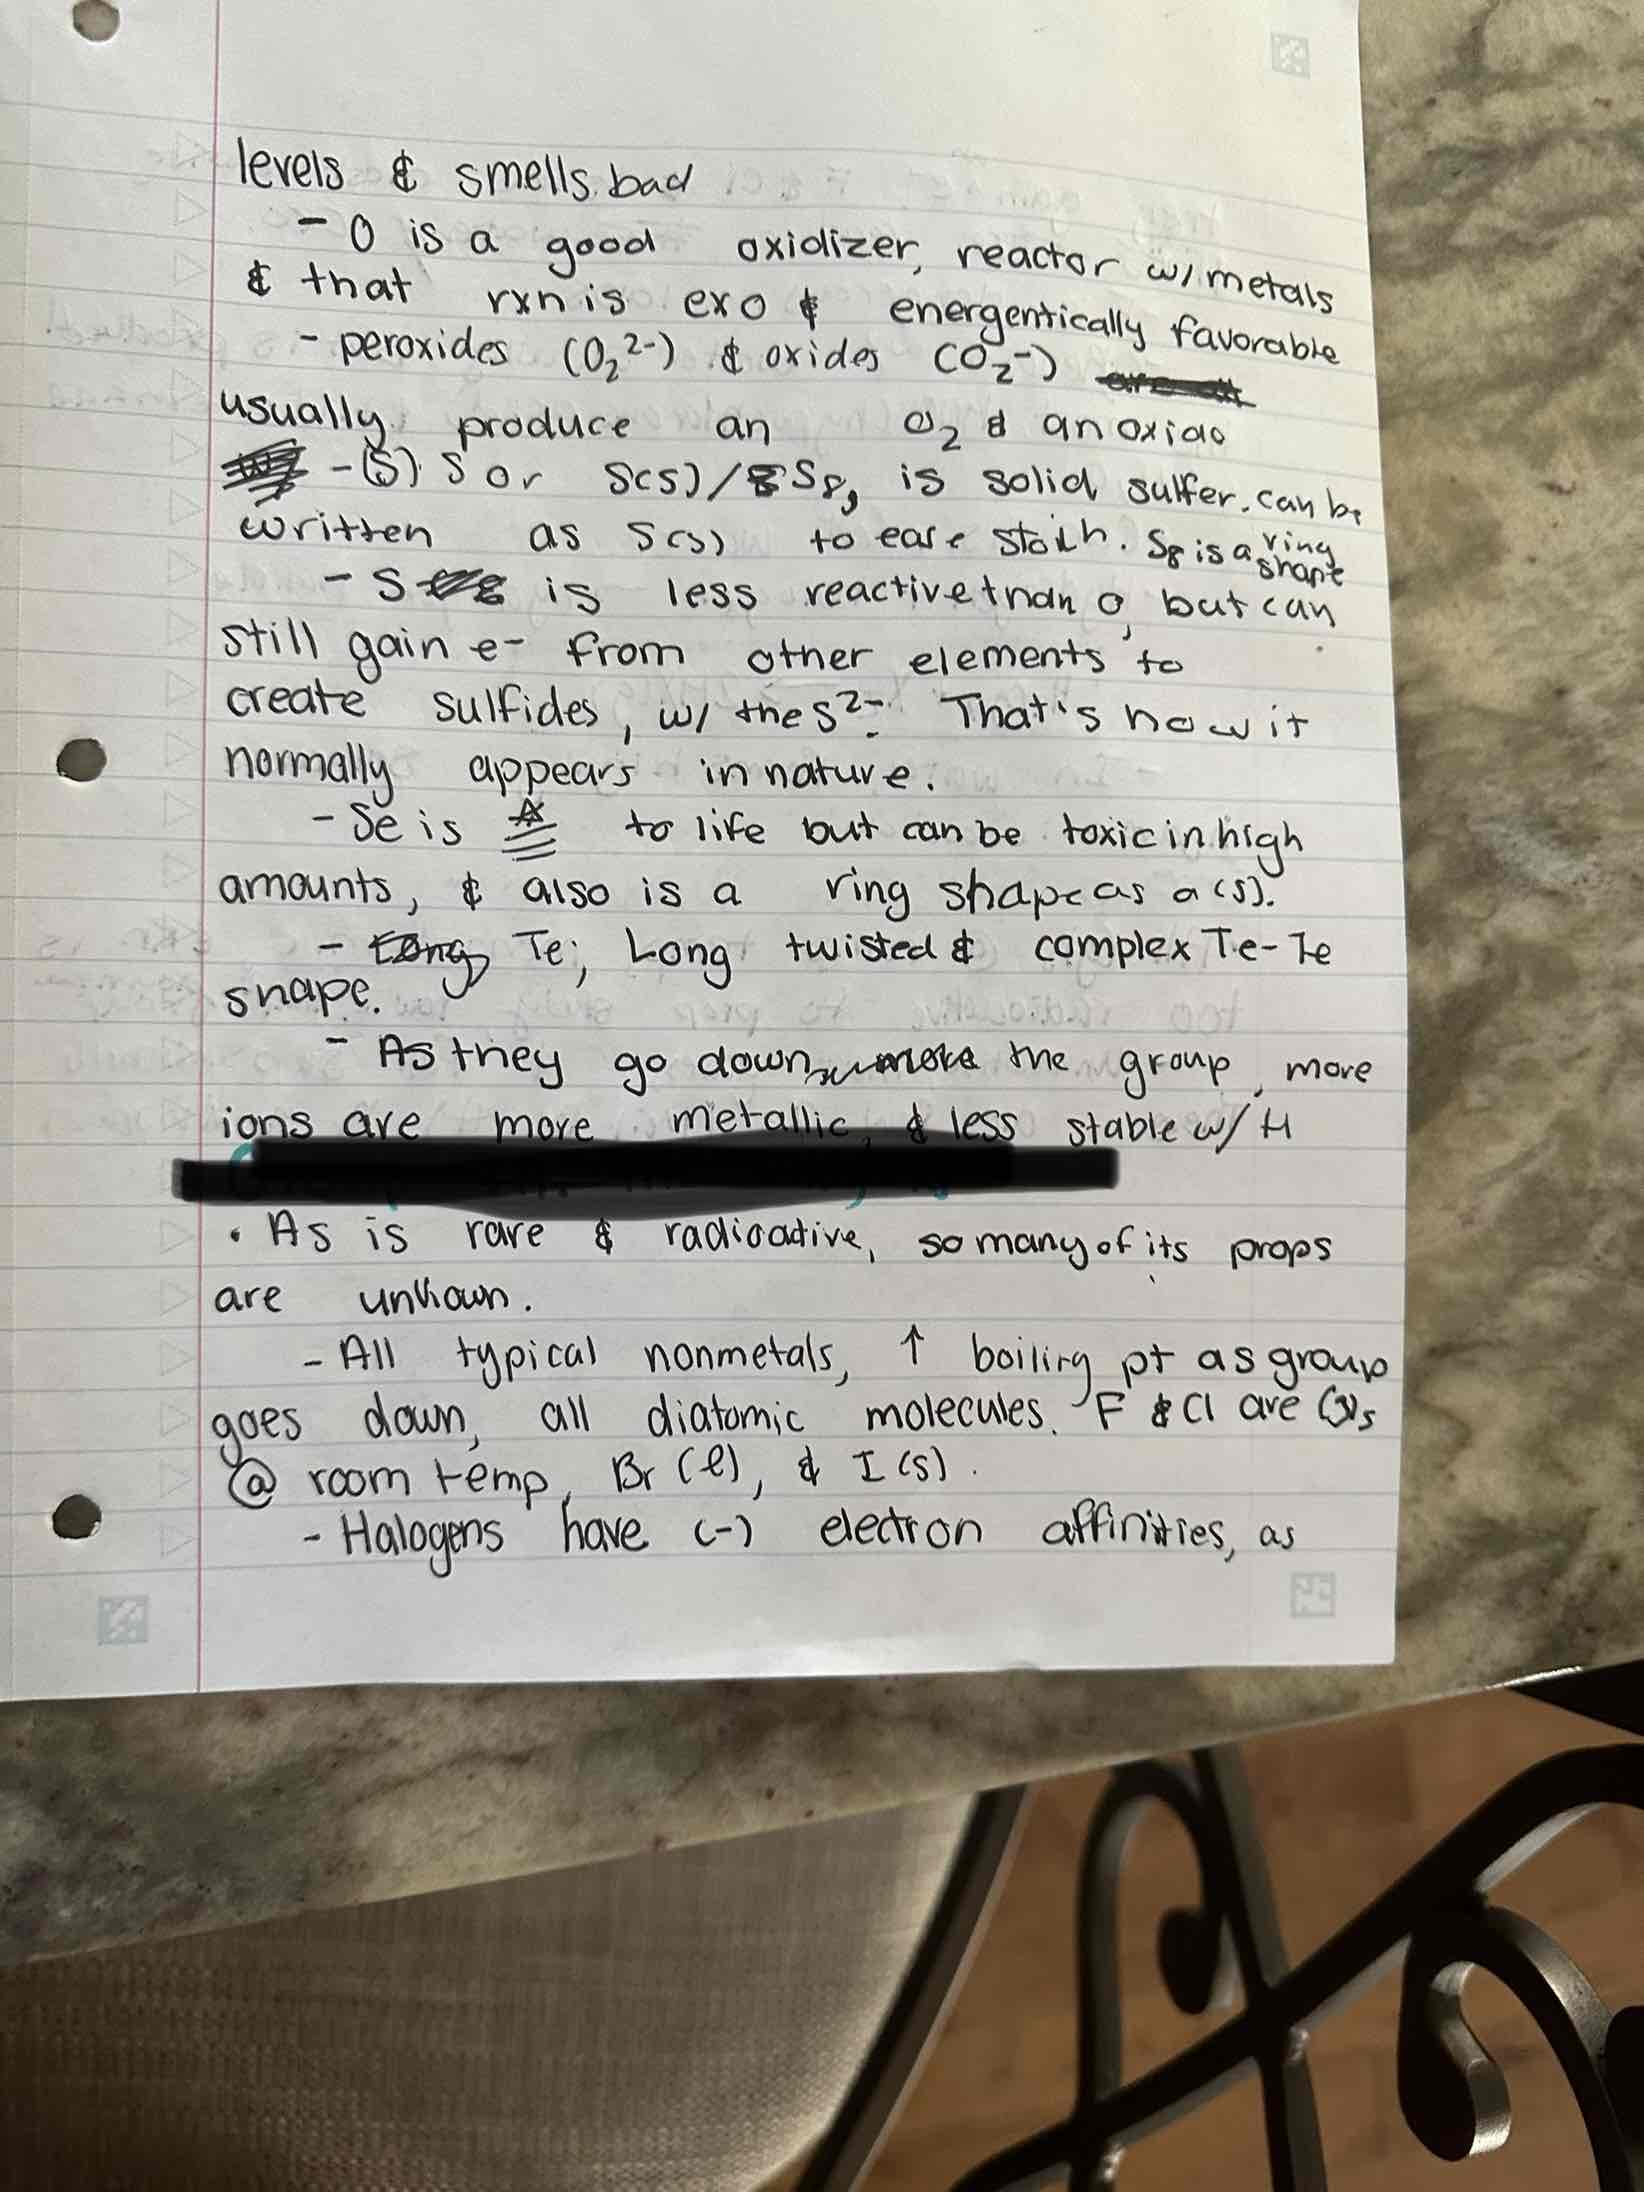 levels & smells bad
- O is a good oxidizer, reactor w/ metals
& that rxn is exo & energentically favorable
- peroxides (O₂²⁻) & oxides (O₂⁻)
usually produce an O₂ & an oxide
- (S) S or S(s)/S₈, is solid sulfer. can be
written as S(s) to ease stoich. S₈ is a ring shape
- S is less reactive than O, but can
still gain e- from other elements to
create sulfides, w/ the S²⁻. That's how it
normally appears in nature.
- Se is to life but can be toxic in high
amounts, & also is a ring shape as a (s).
- Te; Long twisted & complex Te-Te
shape.
- As they go down the group, more
ions are more metallic, & less stable w/ H
• As is rare & radioactive, so many of its props
are unkown.
- All typical nonmetals, ↑ boiling pt as group
goes down, all diatomic molecules. F & Cl are (g)s
@ room temp, Br (l), & I (s).
- Halogens have (-) electron affinities, as